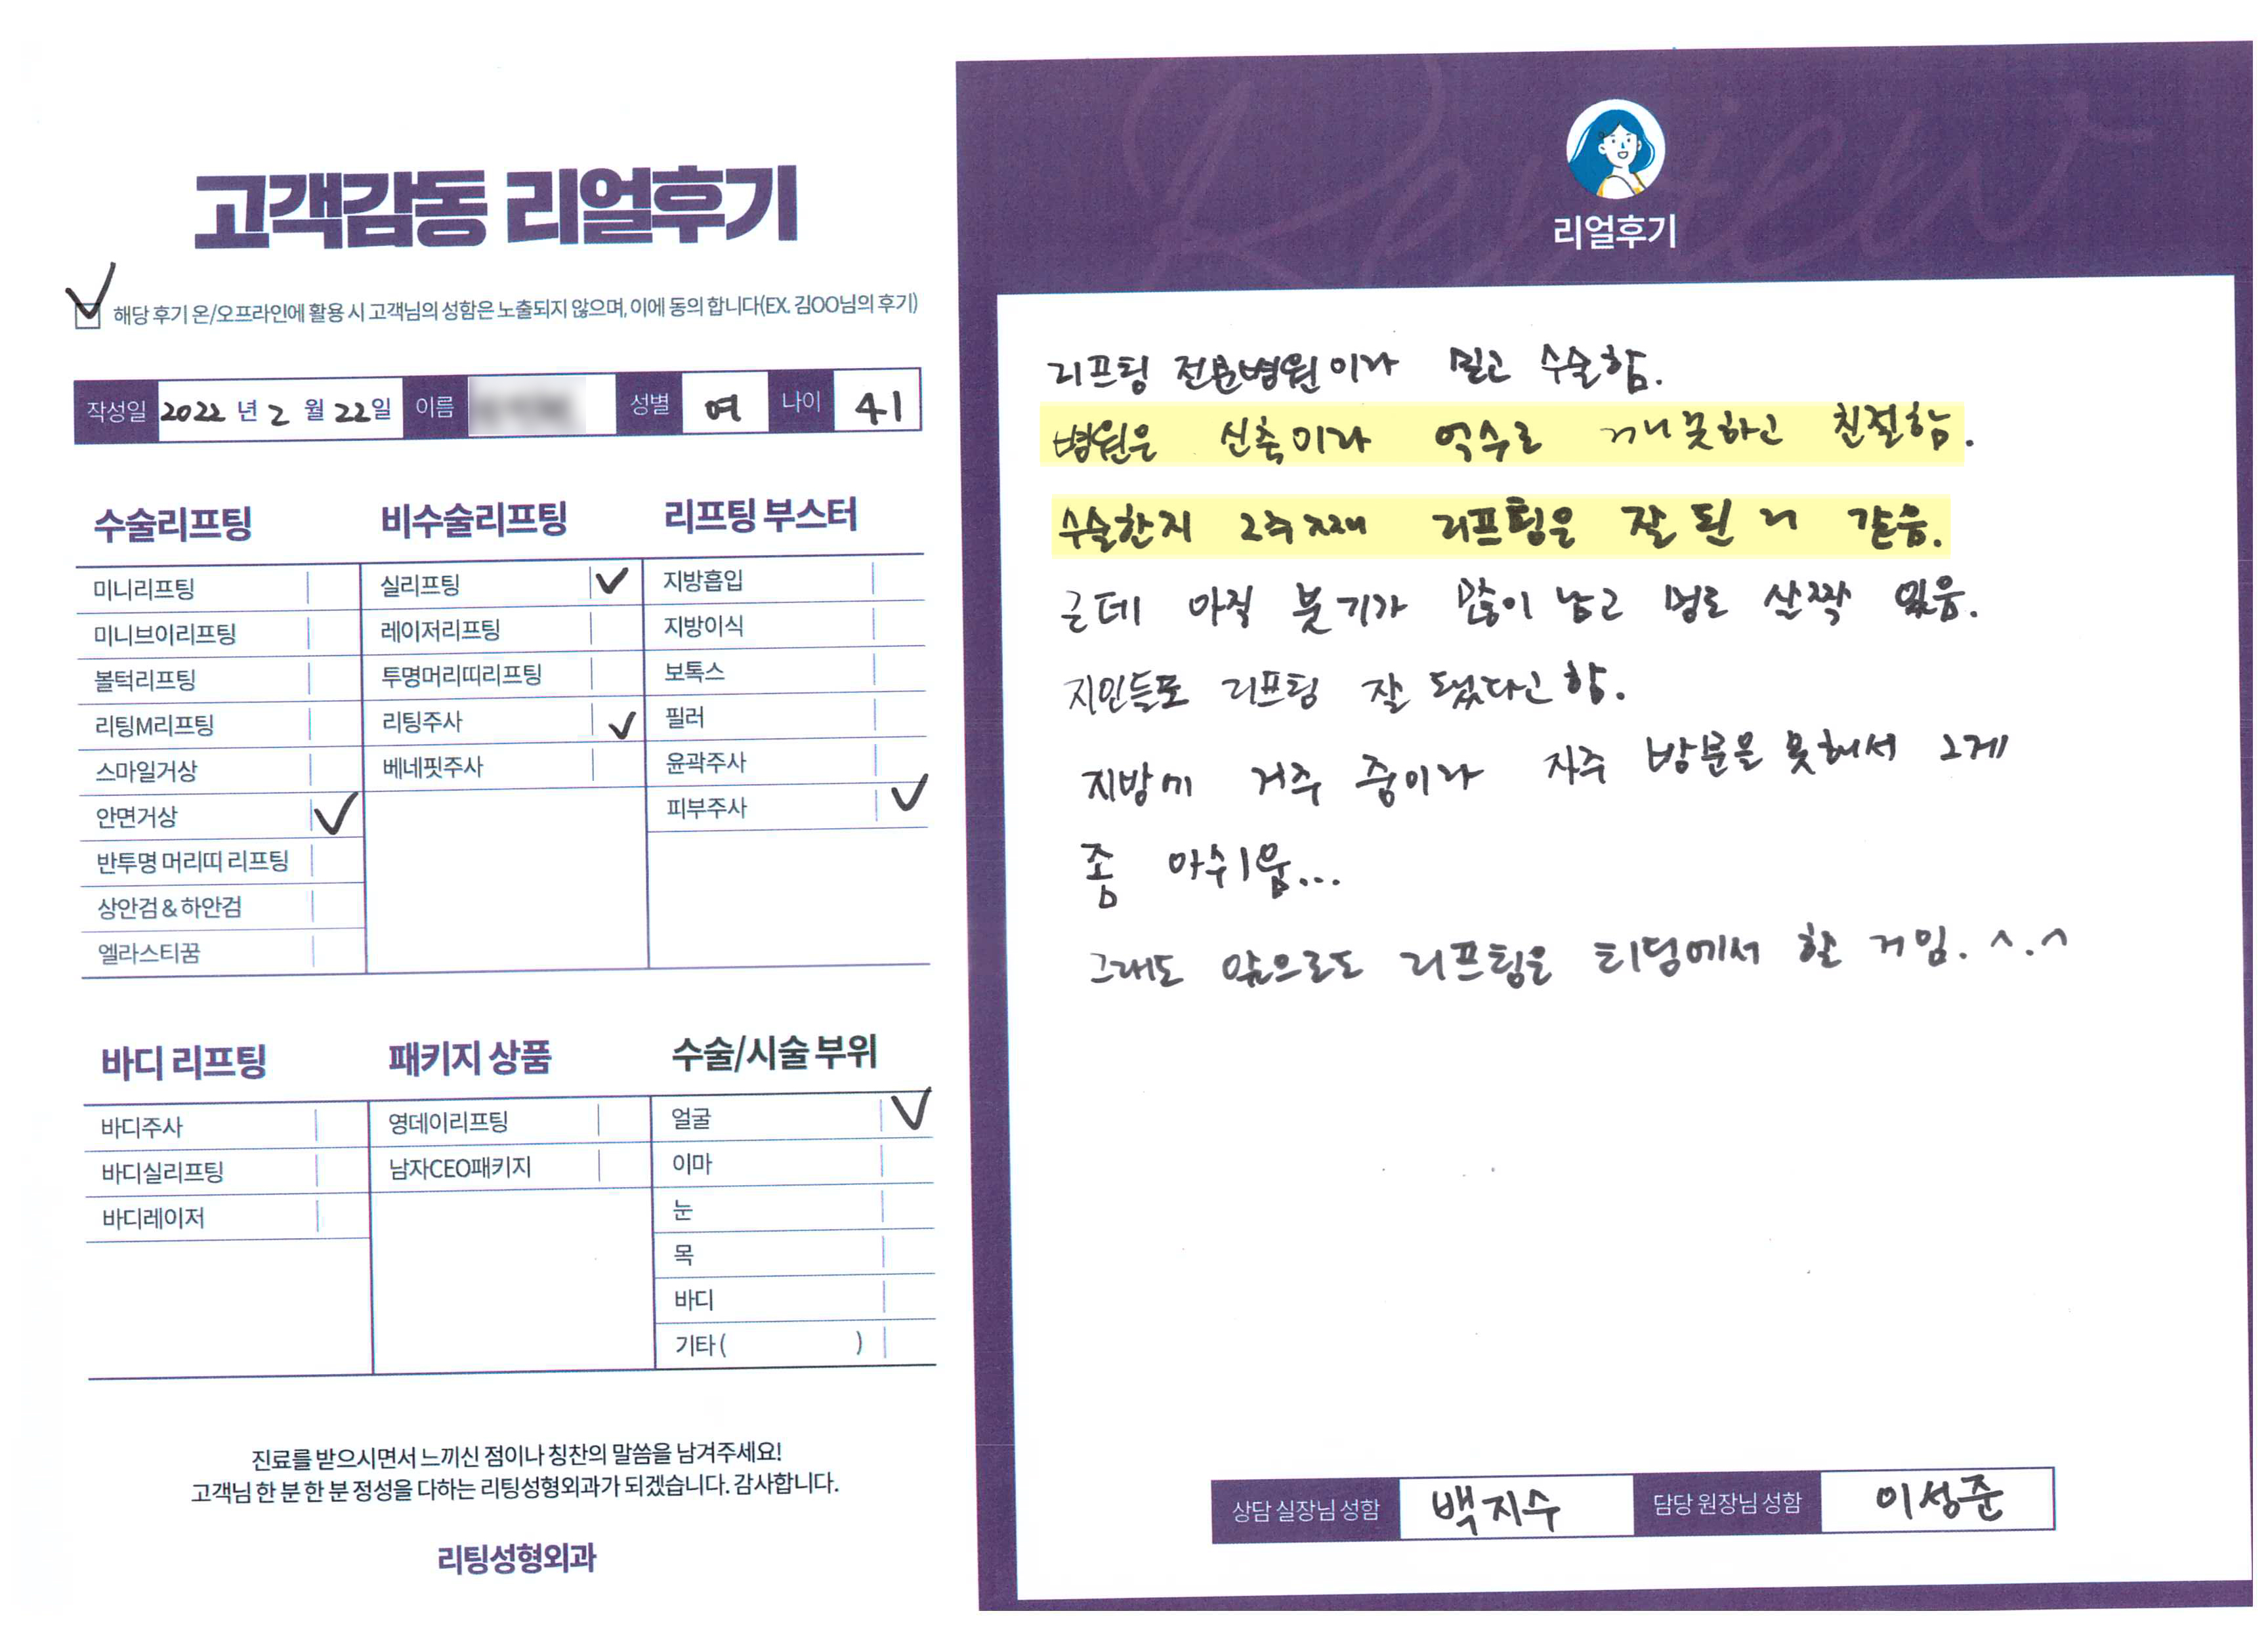 고객감동 리얼후기
해당 후기 온/오프라인에 활용 시 고객님의 성함은 노출되지 않으며, 이에 동의 합니다(EX. 김OO님의 후기)
작성일 2022 년 2 월 22일 이름 성별 여 나이 41
수술리프팅
미니리프팅
미니브이리프팅
볼턱리프팅
리팅M리프팅
스마일거상
안면거상
반투명 머리띠 리프팅
상안검 & 하안검
엘라스티꿈
비수술리프팅
실리프팅
레이저리프팅
투명머리띠리프팅
리팅주사
베네핏주사
리프팅 부스터
지방흡입
지방이식
보톡스
필러
윤곽주사
피부주사
바디 리프팅
바디주사
바디실리프팅
바디레이저
패키지 상품
영데이리프팅
남자CEO패키지
수술/시술 부위
얼굴
이마
눈
목
바디
기타 ( )
진료를 받으시면서 느끼신 점이나 칭찬의 말씀을 남겨주세요!
고객님 한 분 한 분 정성을 다하는 리팅성형외과가 되겠습니다. 감사합니다.
리팅성형외과
Review
리얼후기
리프팅 전문병원이라 믿고 수술함.
병원은 신축이라 억수로 깨끗하고 친절함.
수술한지 2주째 리프팅은 잘 된 거 같음.
근데 아직 붓기가 많이 남고 멍도 살짝 있음.
지인들도 리프팅 잘 됐다고 함.
지방에 거주 중이라 자주 방문을 못해서 그게
좀 아쉬움...
그래도 앞으로도 리프팅은 티팅에서 할 거임. ^.^
상담 실장님 성함 백지수 담당 원장님 성함 이성준